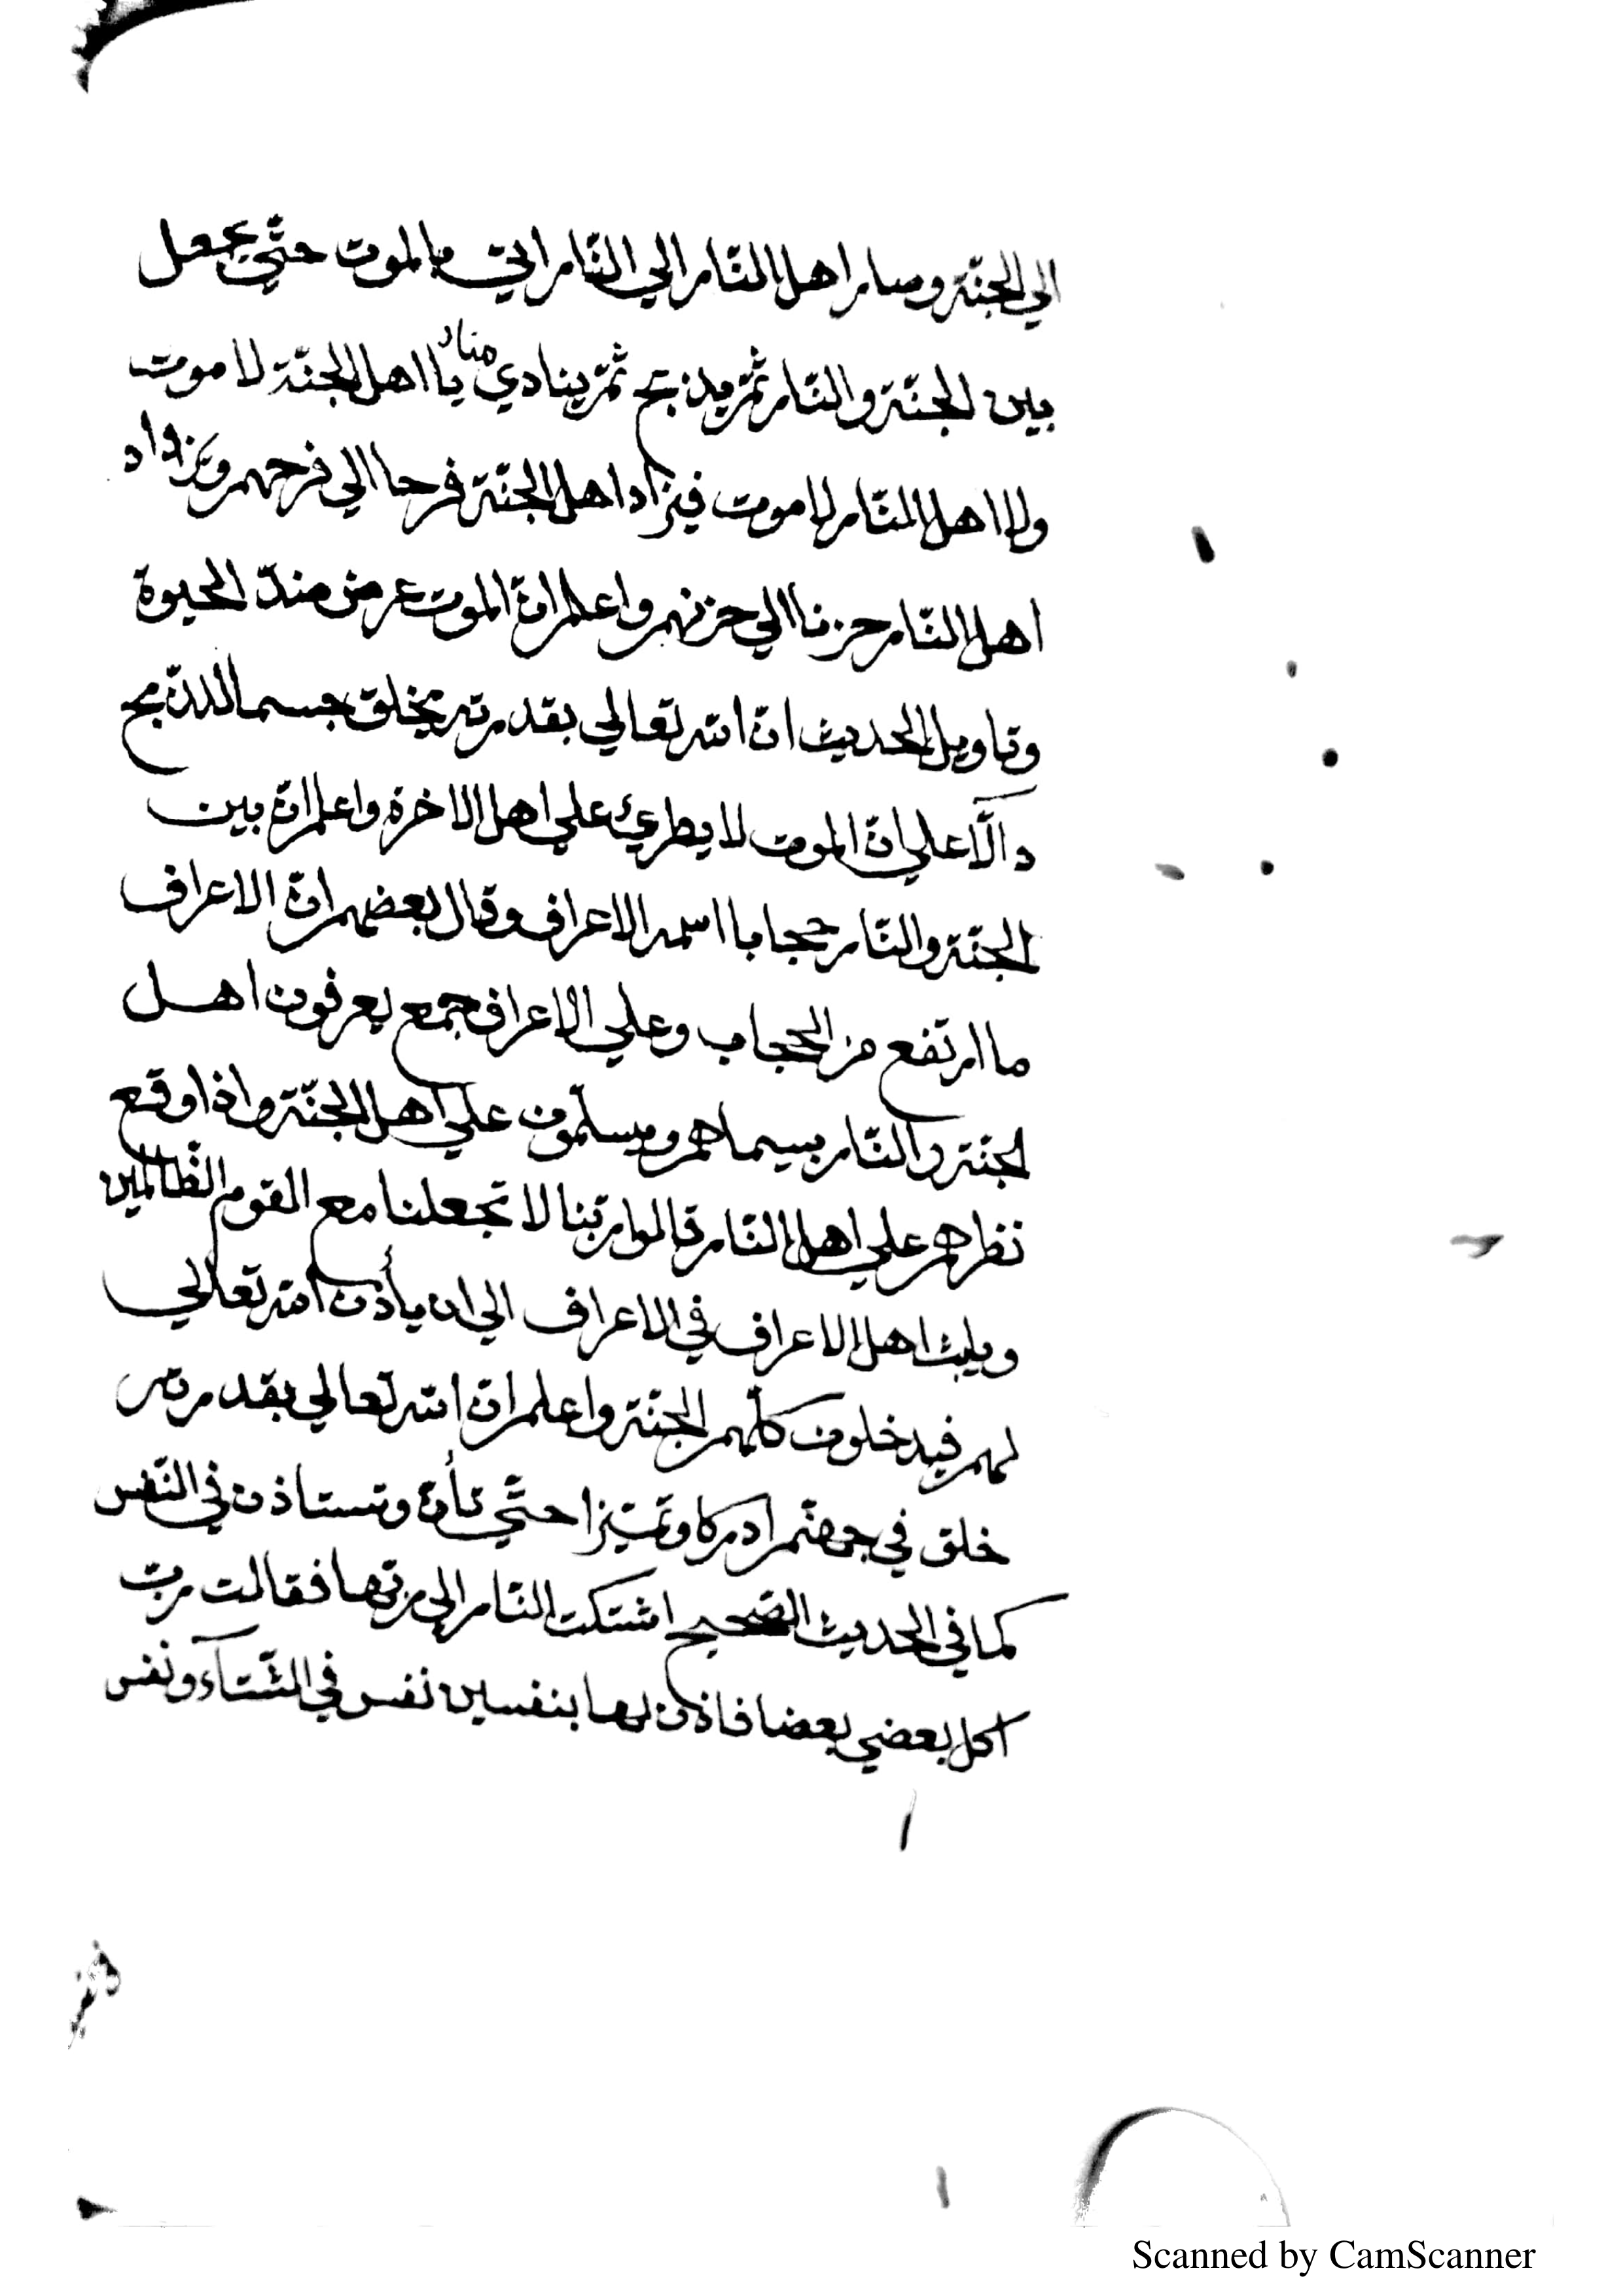 الي الجنّة وسار اهل النّار الي النّار اتي بالموت حتّي يجعل
بين الجنّة والنّار ثمّ يذبح ثمّ ينادي منادٍ يا اهل الجنّة لا موت
ولا اهل النّار لا موت فيزداد اهل الجنّة فرحا الي فرحهم ويزداد
اهل النّار حزنا الي حزنهم واعلم انّ الموت عرض ضدّ الحيوة
وتاويل الحديث انّ الله تعالي بقدرته يخلق جسما للذبح
دالّا علي انّ الموت لا يطرئ علي اهل الاخرة واعلم انّ بين
الجنّة والنّار حجابا اسمه الاعراف وقال بعضهم انّ الاعراف
ما ارتفع من الحجاب وعلي الاعراف جمع يعرفون اهل
لجنّة والنّار بسيماهم ويسلّمون علي اهل الجنّة واذا وقع
نظرهم علي اهل النّار قالوا ربّنا لا تجعلنا مع القوم الظّالمين
ويلبث اهل الاعراف في الاعراف الي ان يأذن الله تعالي
لهم فيدخلون كلّهم الجنّة واعلم انّ الله تعالي بقدرته
خلق في جهنّم ادركا وتميّزا حتّي تأنّ وتستاذن في النّفس
كما في الحديث الصّحيح اشتكت النّار الي ربّها فقالت ربّ
اكل بعضي بعضا فاذن لها بنفسين نفس في الشّتآء ونفس
Scanned by CamScanner